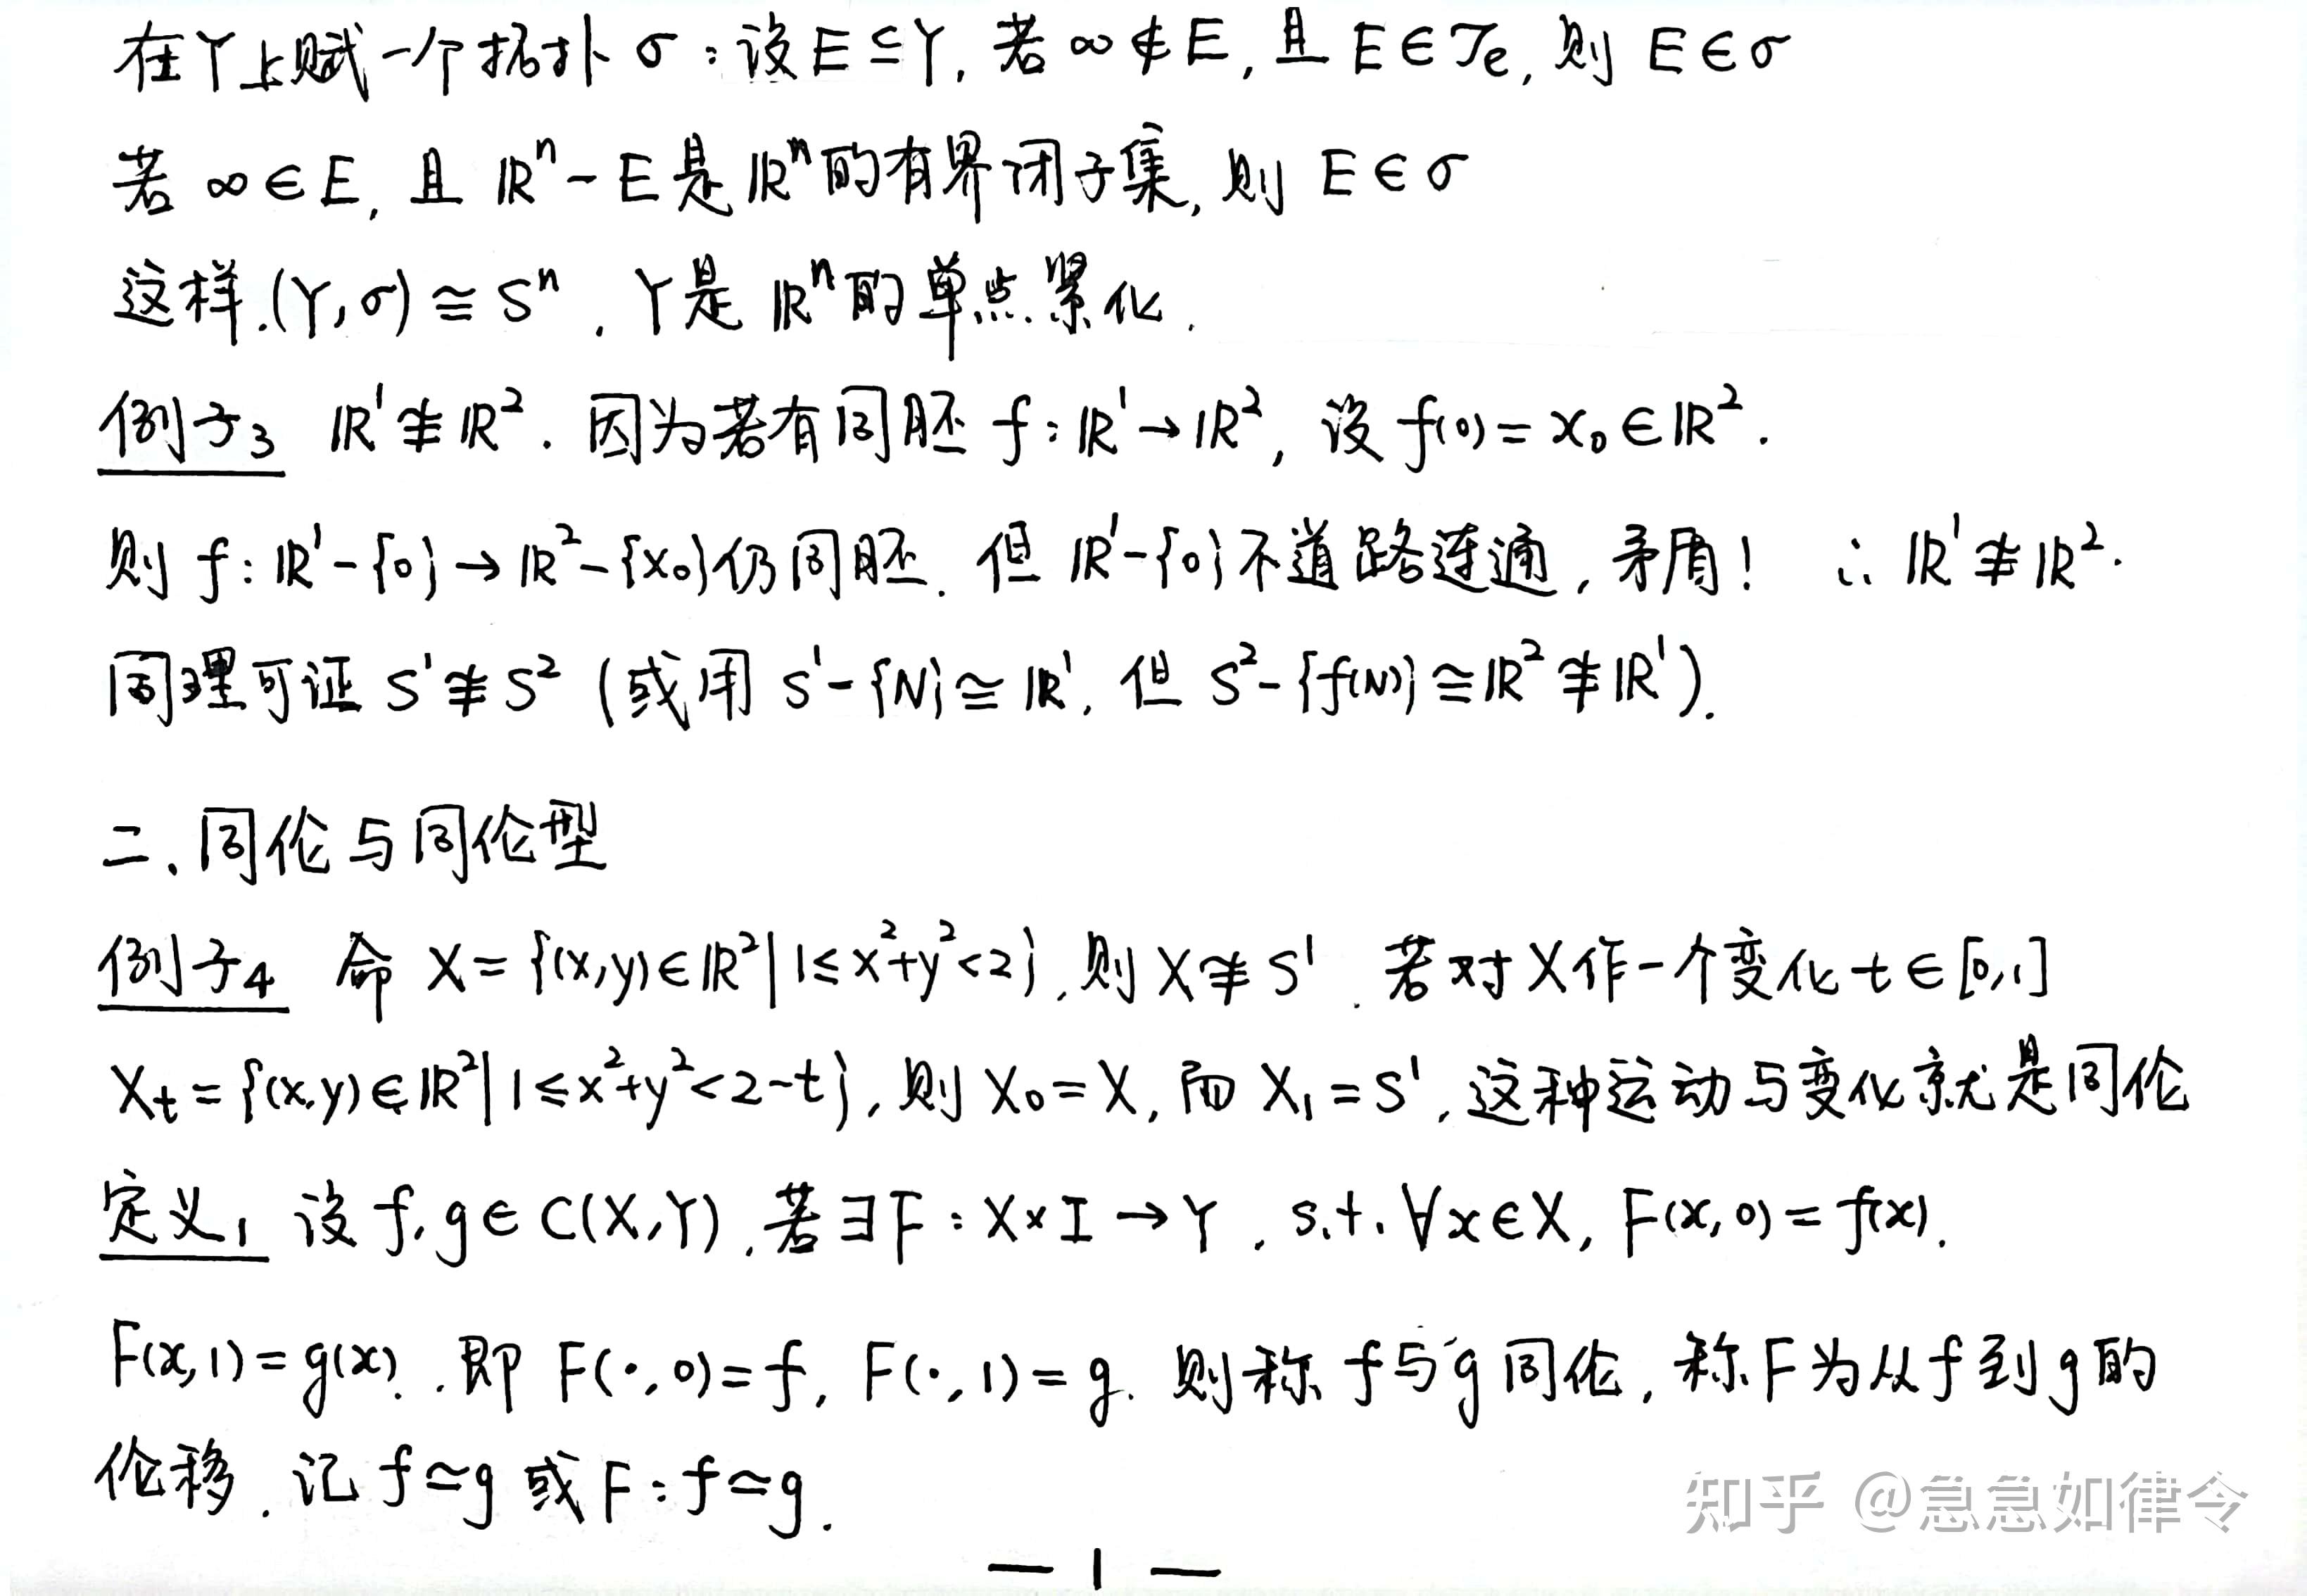 在Y上赋一个拓扑 σ：设E⊆Y, 若 ∞∉E, 且 E∈𝒯e, 则 E∈σ
若 ∞∈E, 且 ℝⁿ-E是ℝⁿ的有界闭子集, 则 E∈σ
这样.(Y,σ)≅Sⁿ. Y是 ℝⁿ的单点紧化.
例子3 ℝ¹≇ℝ². 因为若有同胚 f:ℝ¹→ℝ², 设 f(0)=x₀∈ℝ².
则 f:ℝ¹-{0}→ℝ²-{x₀}仍同胚. 但 ℝ¹-{0}不道路连通, 矛盾! ∴ ℝ¹≇ℝ².
同理可证 S¹≇S² (或用 S¹-{N}≅ℝ¹, 但 S²-{f(N)}≅ℝ²≇ℝ¹).
二. 同伦与同伦型
例子4 命 X={(x,y)∈ℝ²|1≤x²+y²<2}, 则 X≇S¹. 若对X作一个变化 t∈[0,1]
Xt={(x,y)∈ℝ²|1≤x²+y²<2-t}, 则 X₀=X, 而 X₁=S¹, 这种运动与变化就是同伦
定义1 设 f,g∈C(X,Y), 若∃F:X×I→Y, s.t. ∀x∈X, F(x,0)=f(x).
F(x,1)=g(x). 即 F(·,0)=f, F(·,1)=g. 则称 f与g同伦, 称F为从f到g的
伦移. 记 f≃g 或 F:f≃g.
知乎 @急急如律令
— 1 —